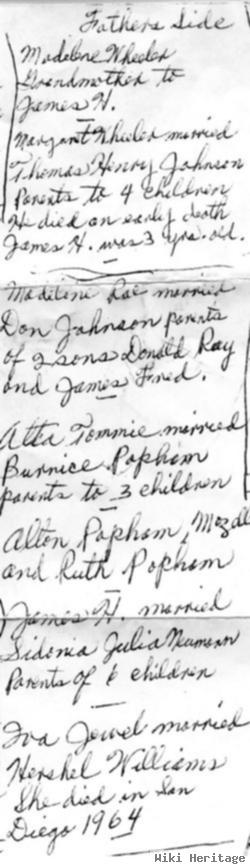 Fathers Side
Madelene Wheeler
Grandmother to
James H.
Margaret Wheeler married
Thomas Henry Johnson
Parents to 4 children
He died an early death
James H. was 3 yrs. old.
Madeline Rae married
Don Johnson parents
of 2 sons Donald Ray
and James Fred.
Alta Tommie married
Burnice Popham
parents to 3 children
Alton Popham, Mozall
and Ruth Popham
James H. married
Sidonia Julia Neumann
Parents of 6 children
Iva Jewel married
Hershel Williams
She died in San
Diego 1964
Hiki Heritage